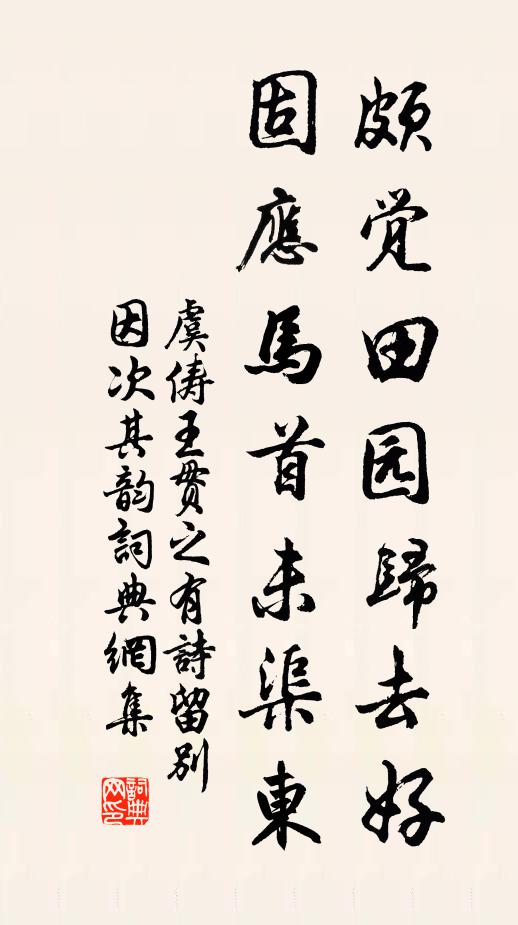 颇觉田园歸去好
固應馬首未渠東
虞儔王贯之有詩留别
因次其韵詞典網集
詞典网印